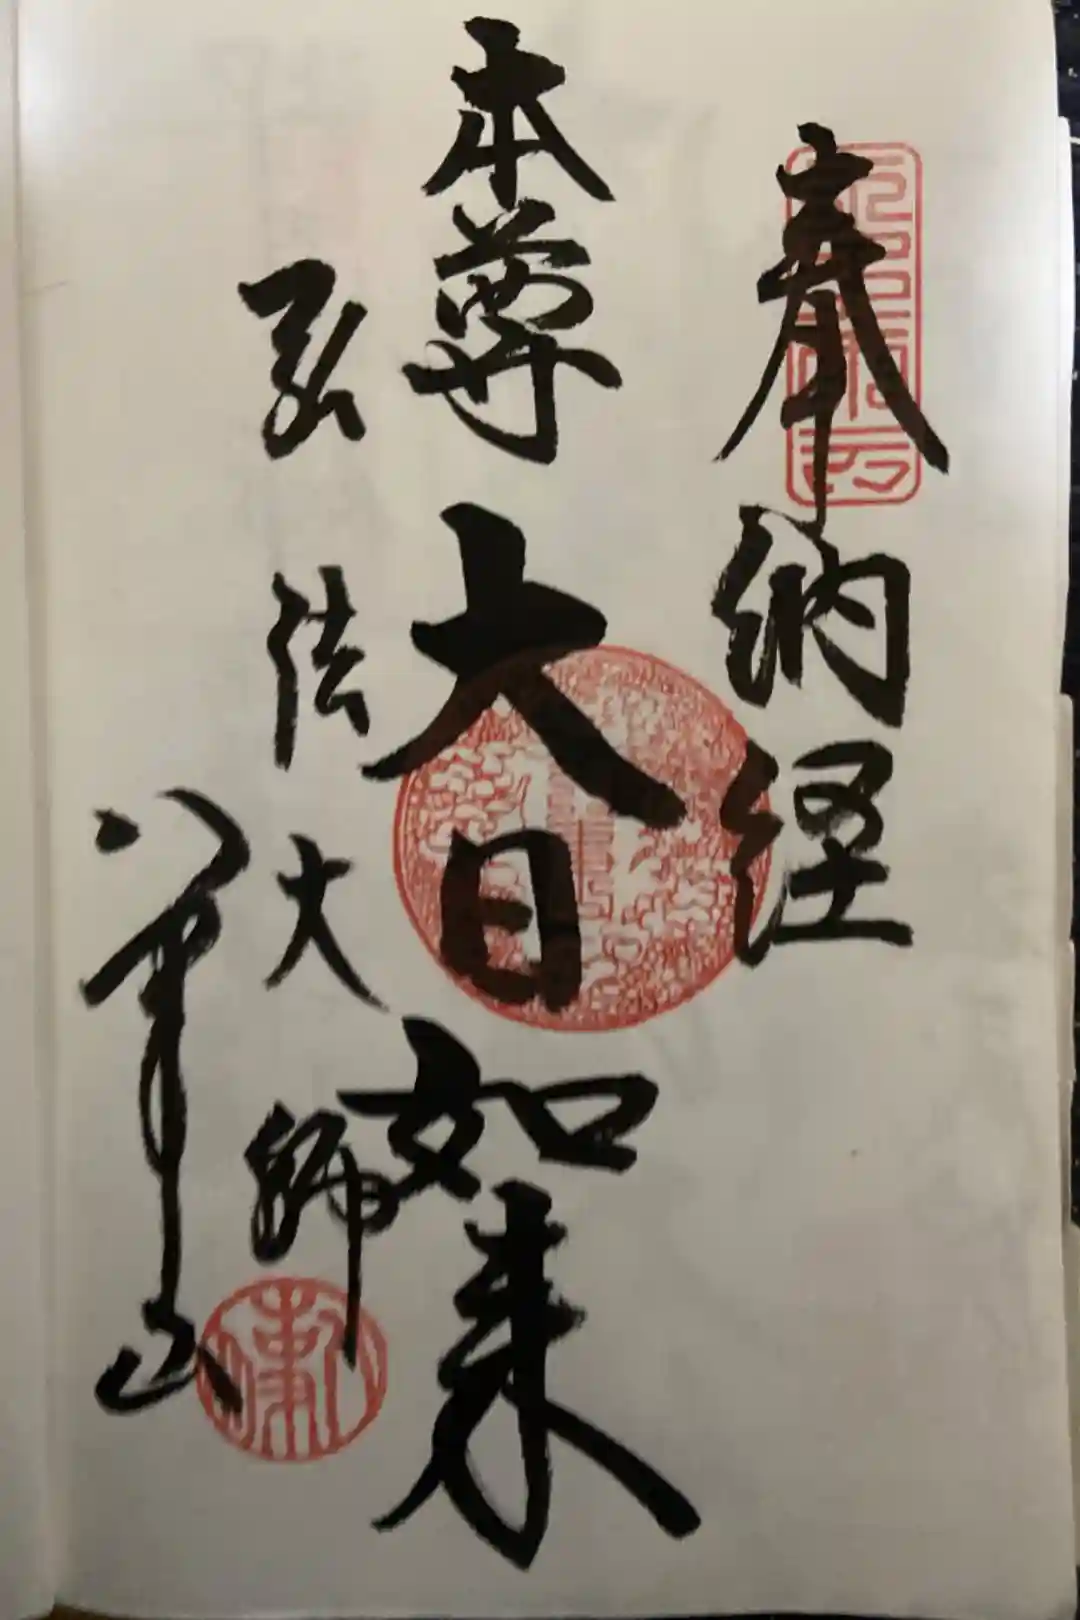 奉納経
本尊大日如来
弘法大師
八葉山